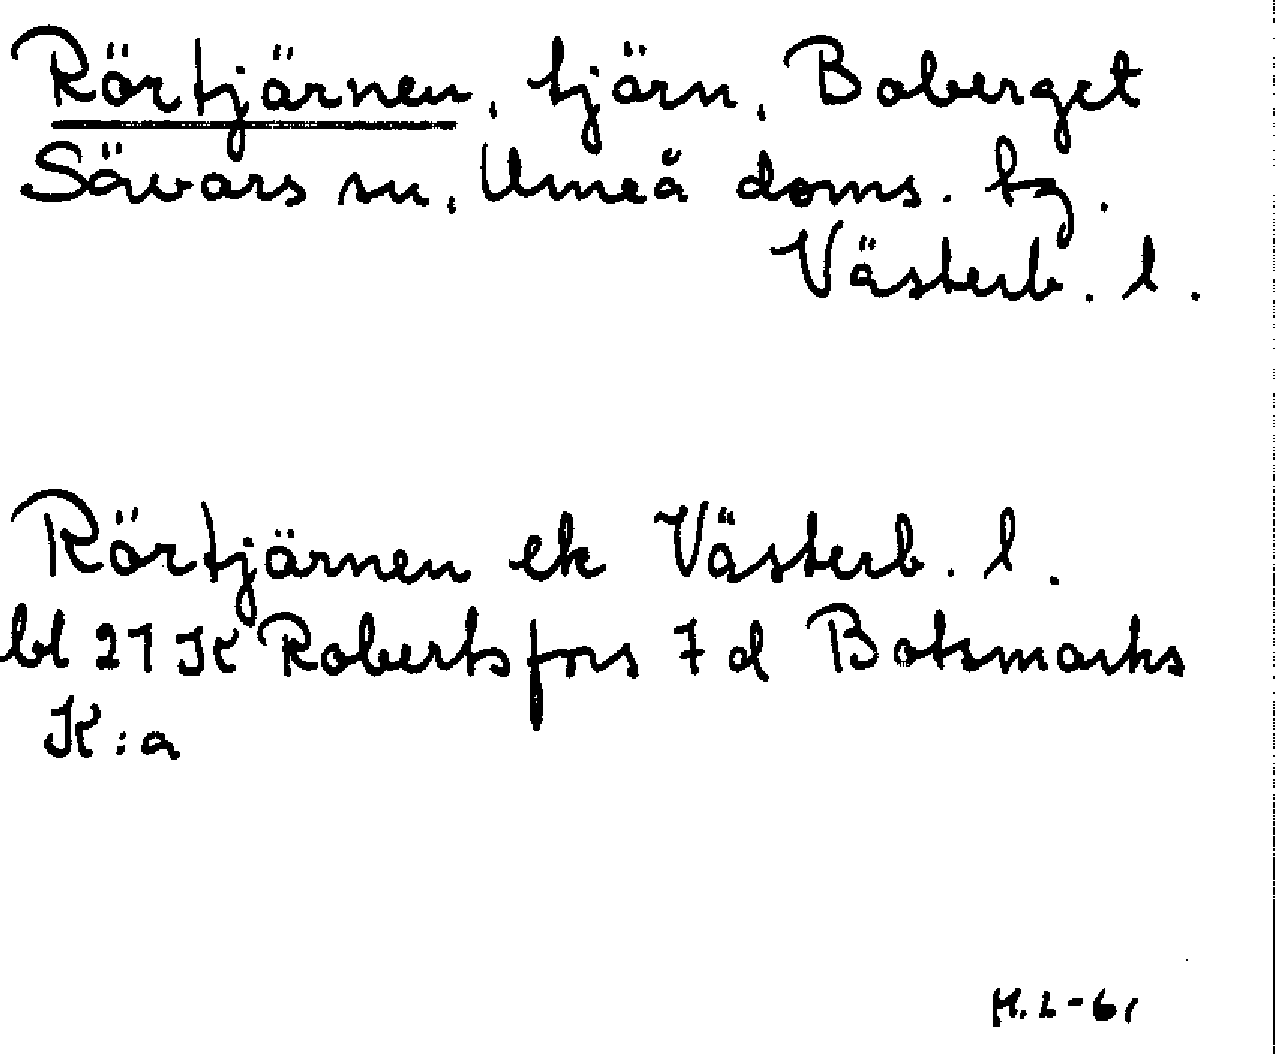 Rörtjärnen, tjärn, Boberget
Sävars sn, Umeå doms. tg.
Västerb. l.
Rörtjärnen ek Västerb. l.
bl 21 K Robertsfors 7 d Botsmarks
K:a
H.L-61